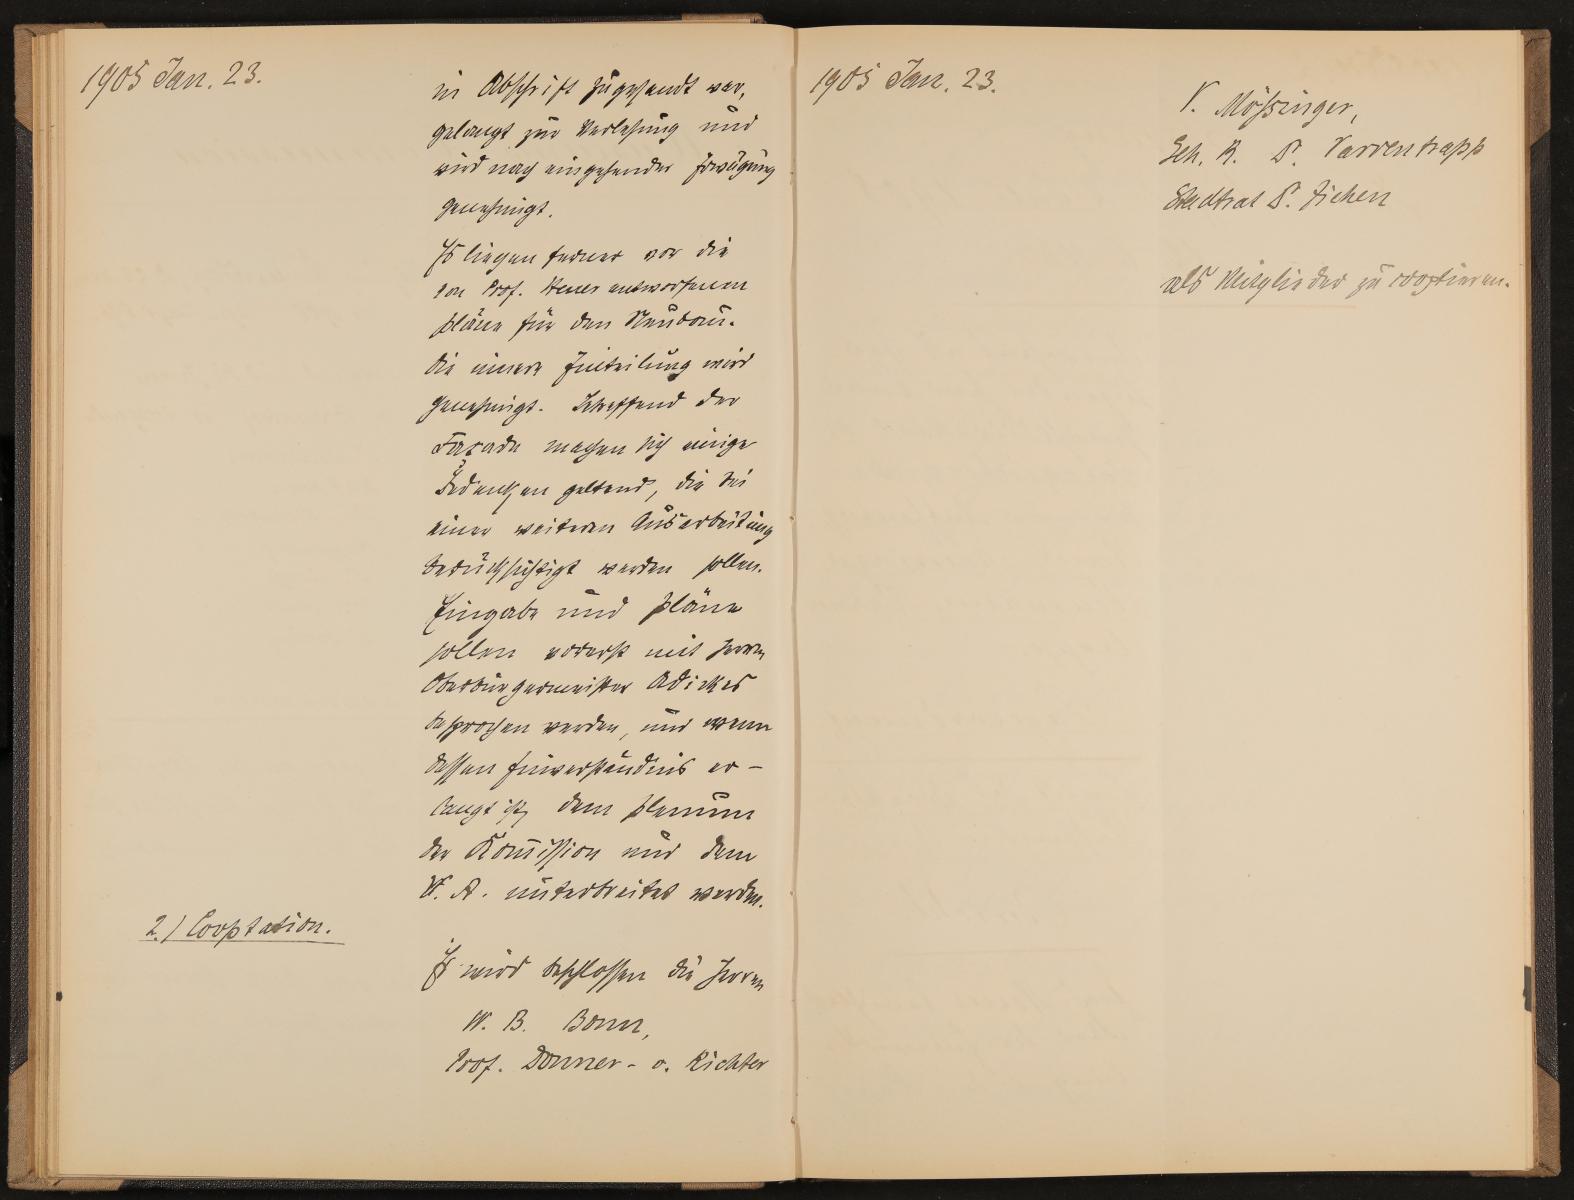 1905 Jan. 23.
in Abschrift zugesandt war,
gelangt zur Verlesung und
wird nach eingehender Erwägung
genehmigt.
Es liegen ferner vor die
von Prof. Neher entworfenen
Pläne für den Neubau.
Die innere Einteilung wird
genehmigt. Betreffend der
Façade machen sich einige
Bedenken geltend, die bei
einer weiteren Ausarbeitung
berücksichtigt werden sollen.
Eingabe und Pläne
sollen vorerst mit Herrn
Oberbürgermeister Adickes
besprochen werden, und wenn
dessen Einverständnis er-
langt ist, dem Plenum
der Kom̅ission und dem
V. A. unterbreitet werden.
2.) Cooptation.
Es wird beschlossen die Herren
W. B. Bonn,
Prof. Donner - v. Richter
1905 Jan. 23.
V. Mössinger,
Geh. R. D. Varrentrapp
Stadtrat D. Ziehen
als Mitglieder zu cooptieren.